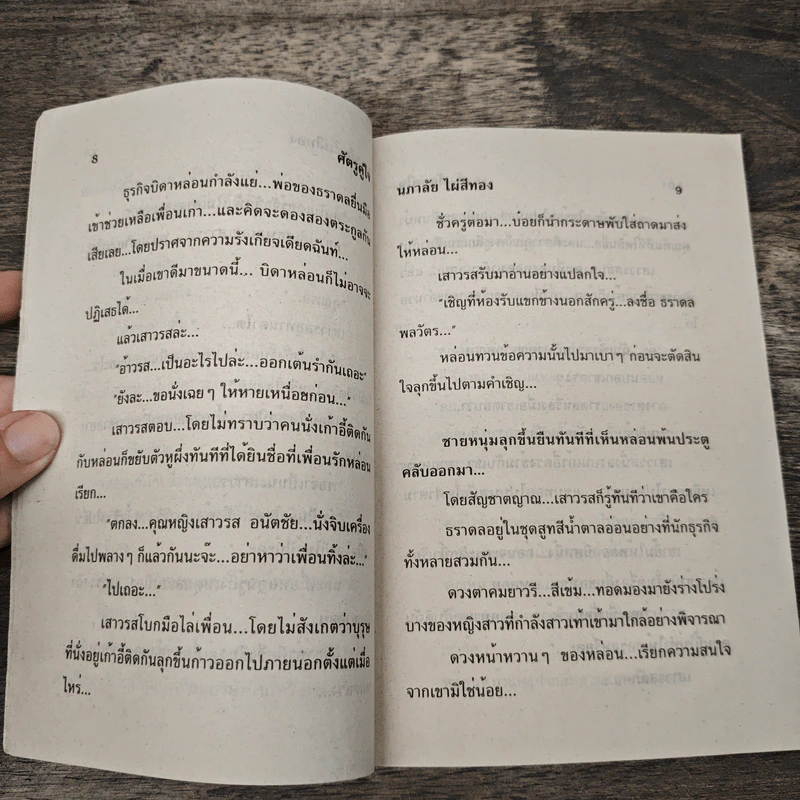 8
ศัตรูคู่ใจ
ธุรกิจบิดาหล่อนกำลังแย่...พ่อของธราดลยื่นมือ
เข้าช่วยเหลือเพื่อนเก่า...และคิดจะดองสองตระกูลกัน
เสียเลย...โดยปราศจากความรังเกียจเดียดฉันท์...
ในเมื่อเขาดีมาขนาดนี้... บิดาหล่อนก็ไม่อาจจะ
ปฏิเสธได้...
แล้วเสาวรสล่ะ...
"อ้าวรส...เป็นอะไรไปล่ะ...ออกเต้นรำกันเถอะ"
"ยังละ...ขอนั่งเฉย ๆ ให้หายเหนื่อยก่อน..."
เสาวรสตอบ...โดยไม่ทราบว่าคนนั่งเก้าอี้ติดกัน
กับหล่อนก็ขยับตัวหูผึ่งทันทีที่ได้ยินชื่อที่เพื่อนรักหล่อน
เรียก...
"ตกลง...คุณหญิงเสาวรส อนัตชัย...นั่งจิบเครื่อง
ดื่มไปพลาง ๆ ก็แล้วกันนะจ๊ะ...อย่าหาว่าเพื่อนทิ้งล่ะ..."
"ไปเถอะ..."
เสาวรสโบกมือไล่เพื่อน...โดยไม่สังเกตว่าบุรุษ
ที่นั่งอยู่เก้าอี้ติดกันลุกขึ้นก้าวออกไปภายนอกตั้งแต่เมื่อ
ไหร่...
นภาลัย ไผ่สีทอง
9
ชั่วครู่ต่อมา...บ๋อยก็นำกระดาษพับใส่ถาดมาส่ง
ให้หล่อน...
เสาวรสรับมาอ่านอย่างแปลกใจ...
"เชิญที่ห้องรับแขกข้างนอกสักครู่...ลงชื่อ ธราดล
พลวัตร..."
หล่อนทวนข้อความนั้นไปมาเบา ๆ ก่อนจะตัดสิน
ใจลุกขึ้นไปตามคำเชิญ...
ชายหนุ่มลุกขึ้นยืนทันทีที่เห็นหล่อนพ้นประตู
คลับออกมา...
โดยสัญชาตญาณ...เสาวรสก็รู้ทันทีว่าเขาคือใคร
ธราดลอยู่ในชุดสูทสีน้ำตาลอ่อนอย่างที่นักธุรกิจ
ทั้งหลายสวมกัน...
ดวงตาคมยาวรี...สีเข้ม...ทอดมองมายังร่างโปร่ง
บางของหญิงสาวที่กำลังสาวเท้าเข้ามาใกล้อย่างพิจารณา
ดวงหน้าหวาน ๆ ของหล่อน...เรียกความสนใจ
จากเขามิใช่น้อย...